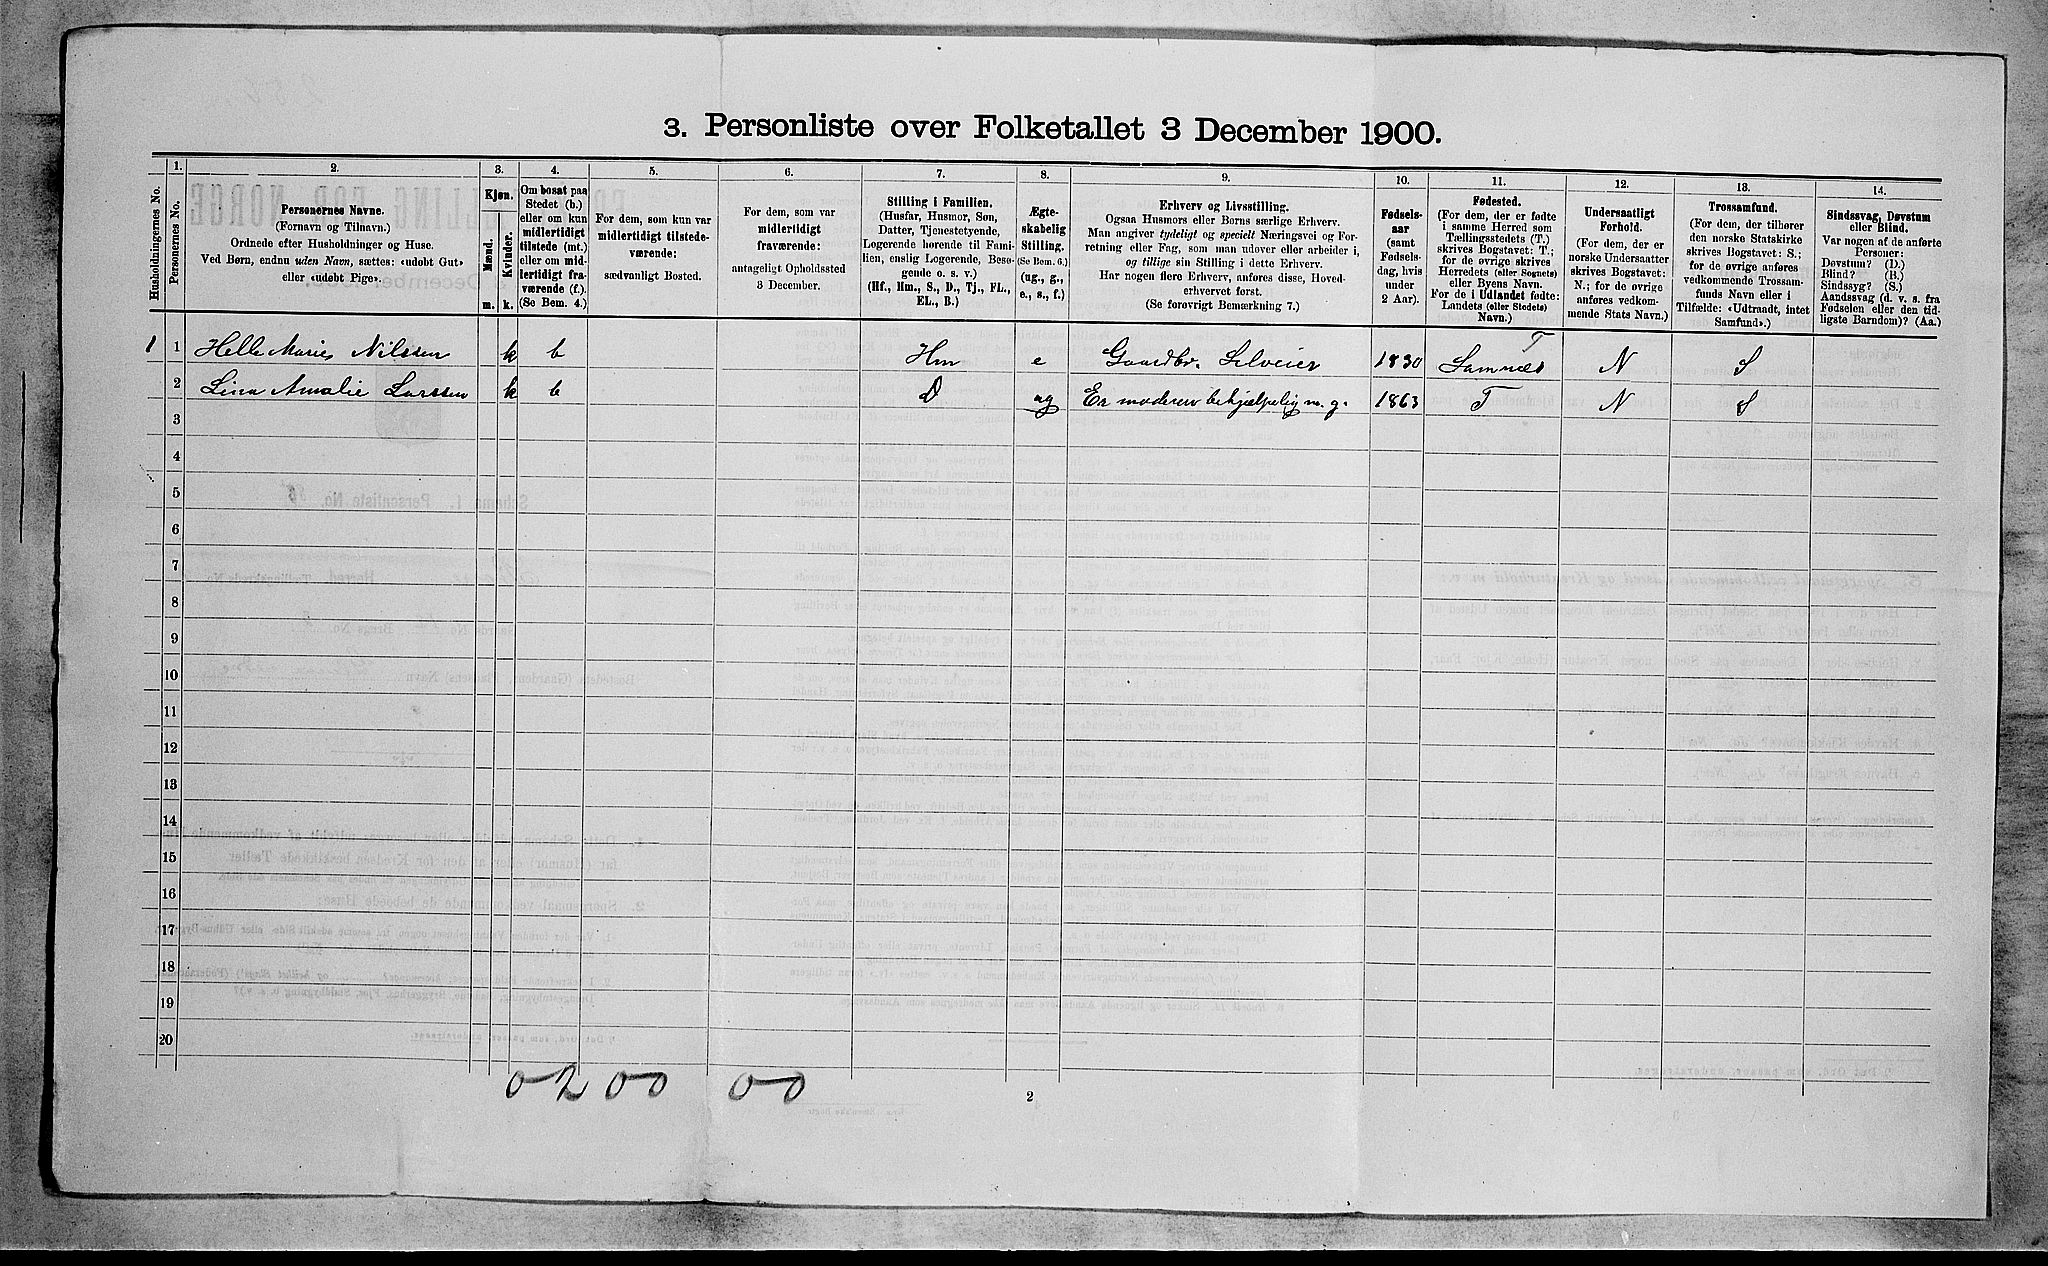 3. Personliste over Folketallet 3 December 1900.
Husholdningernes No.
1.
Personernes No.
2.
Personernes Navne.
(Fornavn og Tilnavn.)
Ordnede efter Husholdninger og Huse.
Ved Børn, endnu uden Navn, sættes: «udøbt Gut»
eller «udøbt Pige».
3.
Kjøn.
Mænd.
Kvinder.
m.
k.
4.
Om bosat paa
Stedet (b.)
eller om kun
midlertidigt
tilstede (mt.)
eller om mid-
lertidigt fra-
værende (f.).
(Se Bem. 4.)
5.
For dem, som kun var
midlertidigt tilstede-
værende:
sædvanligt Bosted.
6.
For dem, som var
midlertidigt
fraværende:
antageligt Opholdssted
3 December.
7.
Stilling i Familien.
(Husfar, Husmor, Søn,
Datter, Tjenestetyende,
Logerende hørende til Fami-
lien, enslig Logerende, Besø-
gende o. s. v.)
(Hf., Hm., S., D., Tj., FL.,
EL., B.)
8.
Ægte-
skabelig
Stilling.
(Se Bem. 6.)
(ug., g.,
e., s., f.)
9.
Erhverv og Livsstilling.
Ogsaa Husmors eller Børns særlige Erhverv.
Man angiver tydeligt og specielt Næringsvei og For-
retning eller Fag, som man udover eller arbeider i,
og tillige sin Stilling i dette Erhverv.
Har nogen flere Erhverv, anføres disse, Hoved-
erhvervet først.
(Se forøvrigt Bemærkning 7.)
10.
Fødsels-
aar
(samt
Fødsels-
dag, hvis
under
2 Aar).
11.
Fødested.
(For dem, der er fødte
i samme Herred som
Tællingsstedets (T.)
skrives Bogstavet: T.;
for de øvrige skrives
Herredets (eller Sognets)
eller Byens Navn.
For de i Udlandet fødte:
Landets (eller Stedets)
Navn.)
12.
Undersaatligt
Forhold.
(For dem, der er
norske Undersaatter
skrives Bogstavet:
N.; for de øvrige
anføres vedkom-
mende Stats Navn.)
13.
Trossamfund.
(For dem, der tilhører
den norske Statskirke
skrives Bogstavet: S.;
for de øvrige anføres
vedkommende Trossam-
funds Navn eller i
Tilfælde: «Udtraadt, intet
Samfund».)
14.
Sindssvag, Døvstum
eller Blind.
Var nogen af de anførte
Personer:
Døvstum? (D.)
Blind? (B.)
Sindssyg? (S.)
Aandssvag (d. v. s. fra
Fødselen eller den tid-
ligste Barndom)? (Aa.)
T
1 1 Helle Marie Nilssen k b Hm e Gaardbr. Selveier 1830 Samnes N S
2 Lina Amalie Larssen k b D ug Er moderen behjælpelig m. g. 1863 T N S
3
4
5
6
7
8
9
10
11
12
13
14
15
16
17
18
19
20
0 2 00 00
2